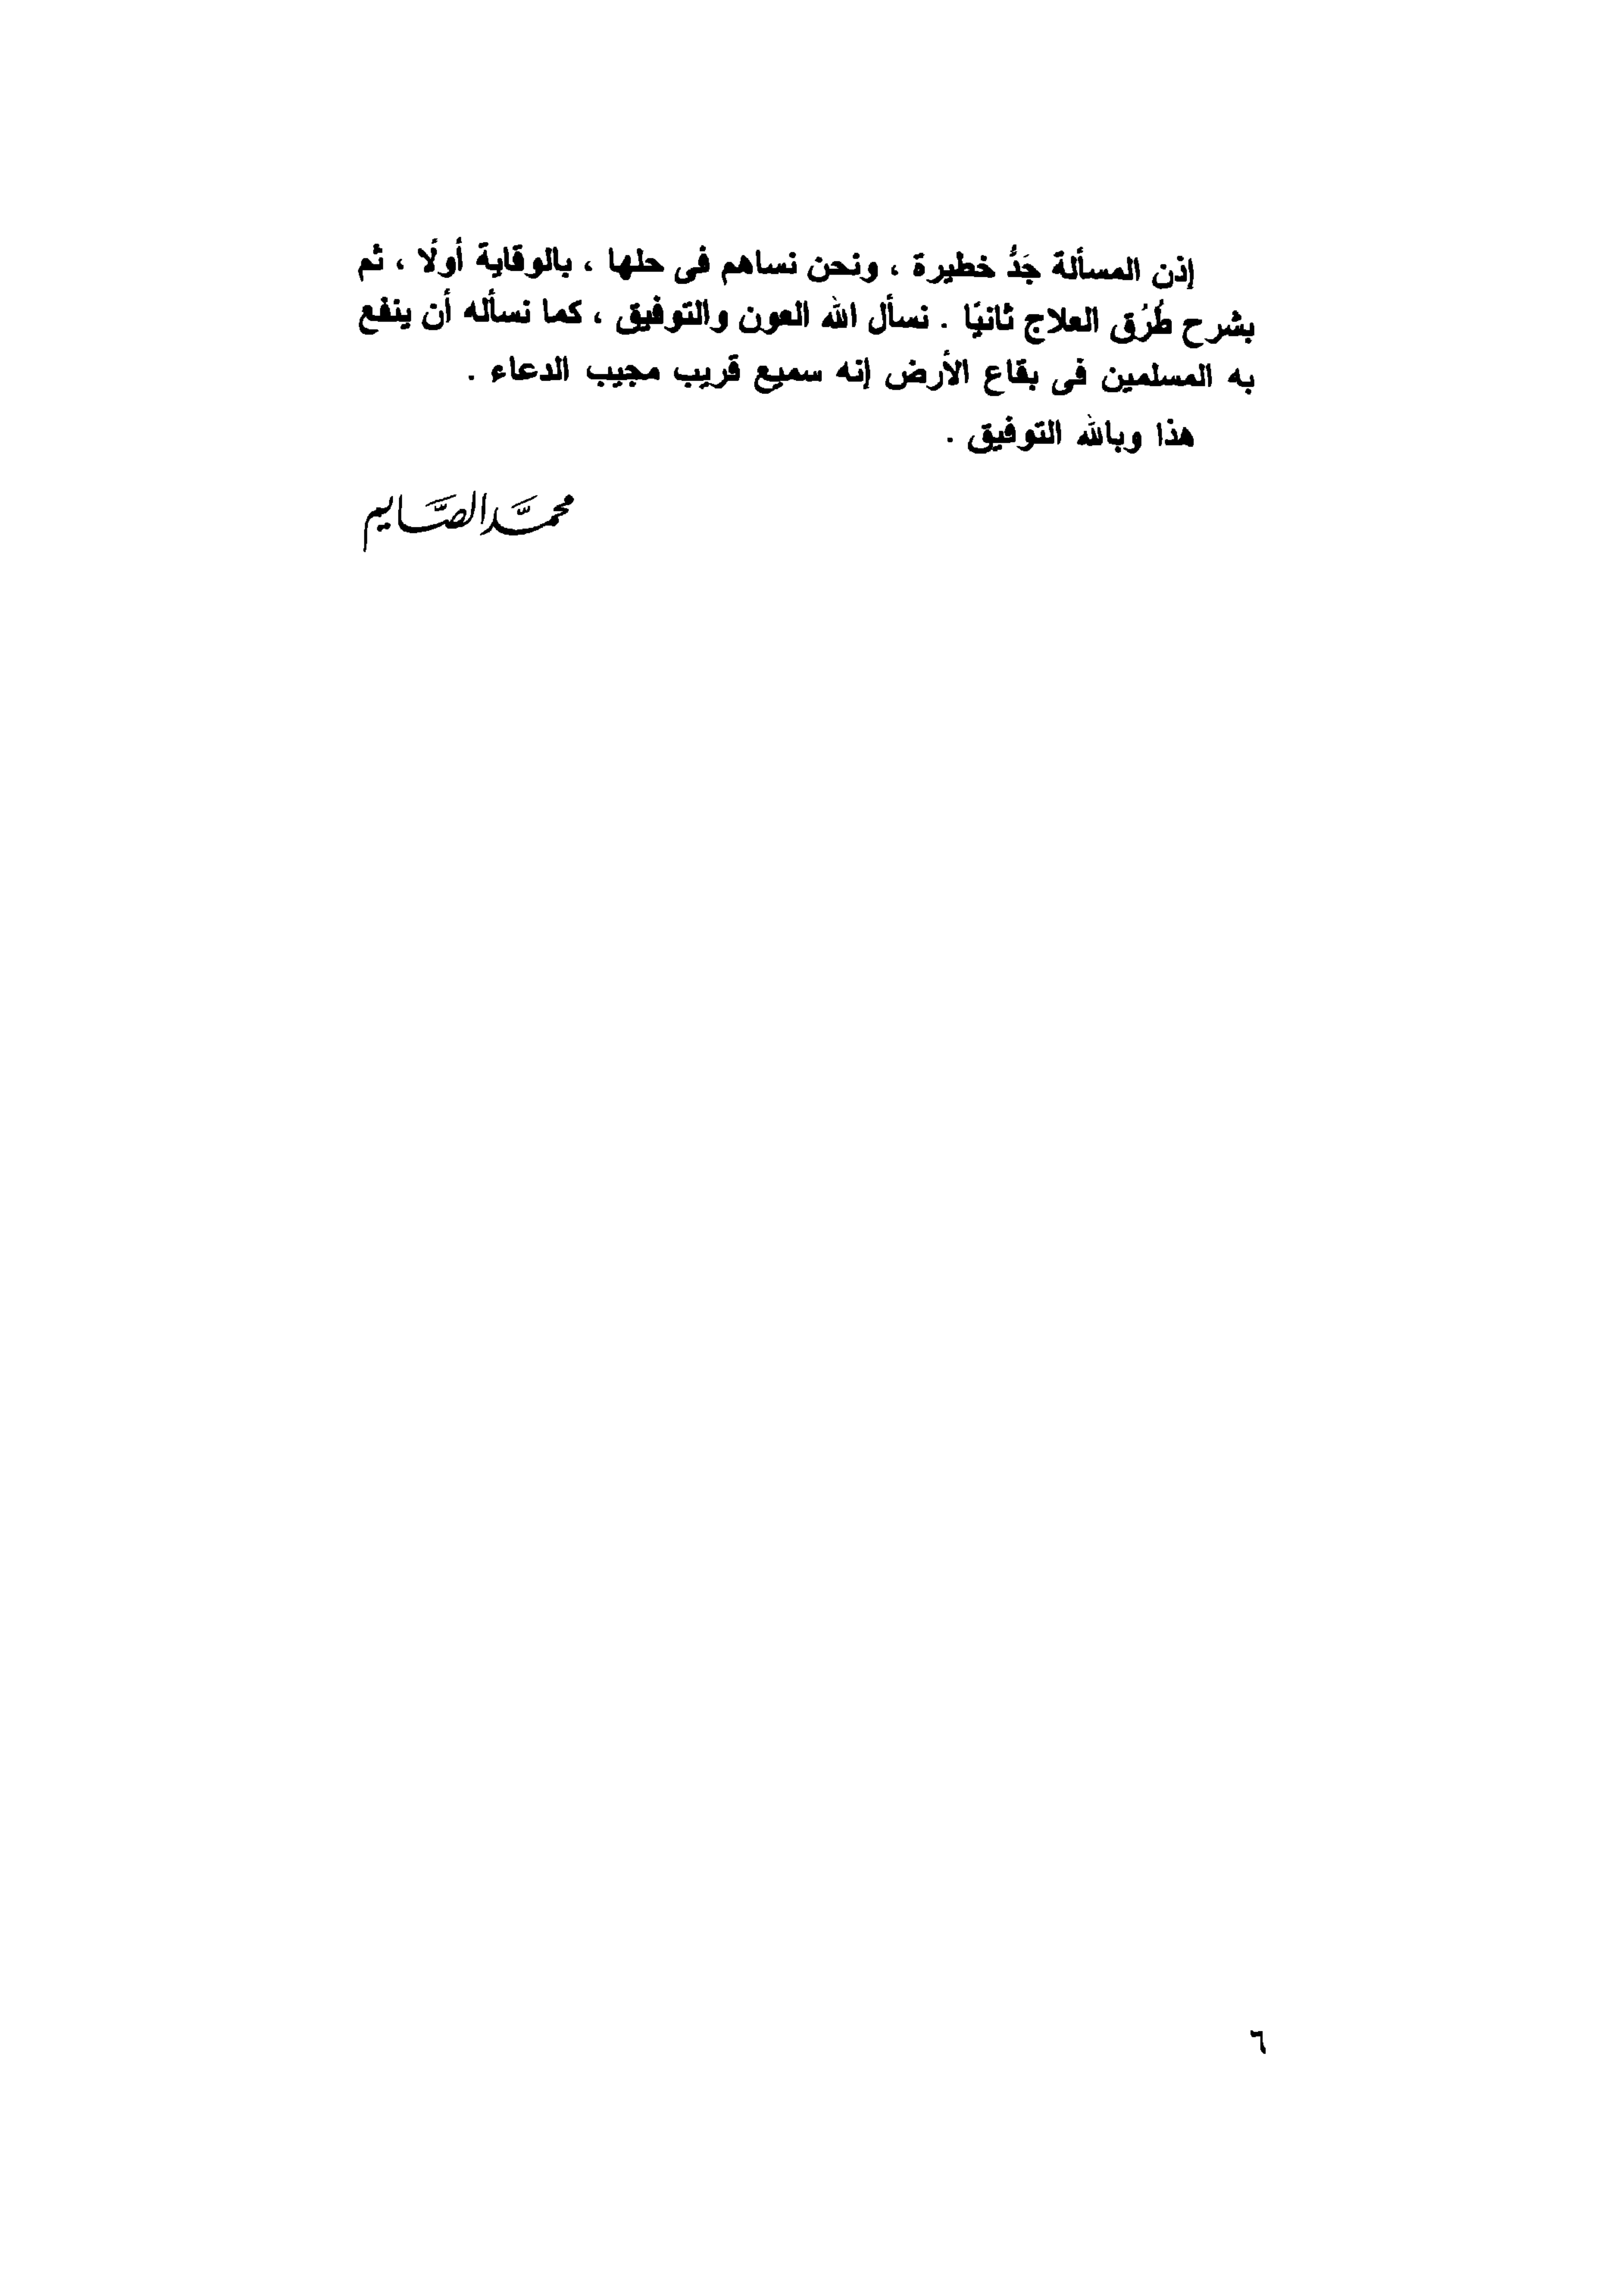 إذن المسألة جَدُّ خطيرة ، ونحن نساهم فى حلها ، بالوقاية أولًا ، ثم
بشرح طُرُق العلاج ثانيًا . نسأل الله العون والتوفيق ، كما نسأله أن ينفع
به المسلمين فى بقاع الأرض إنه سميع قريب مجيب الدعاء .
هذا وبالله التوفيق .
محمَّد الصَّايم
٦